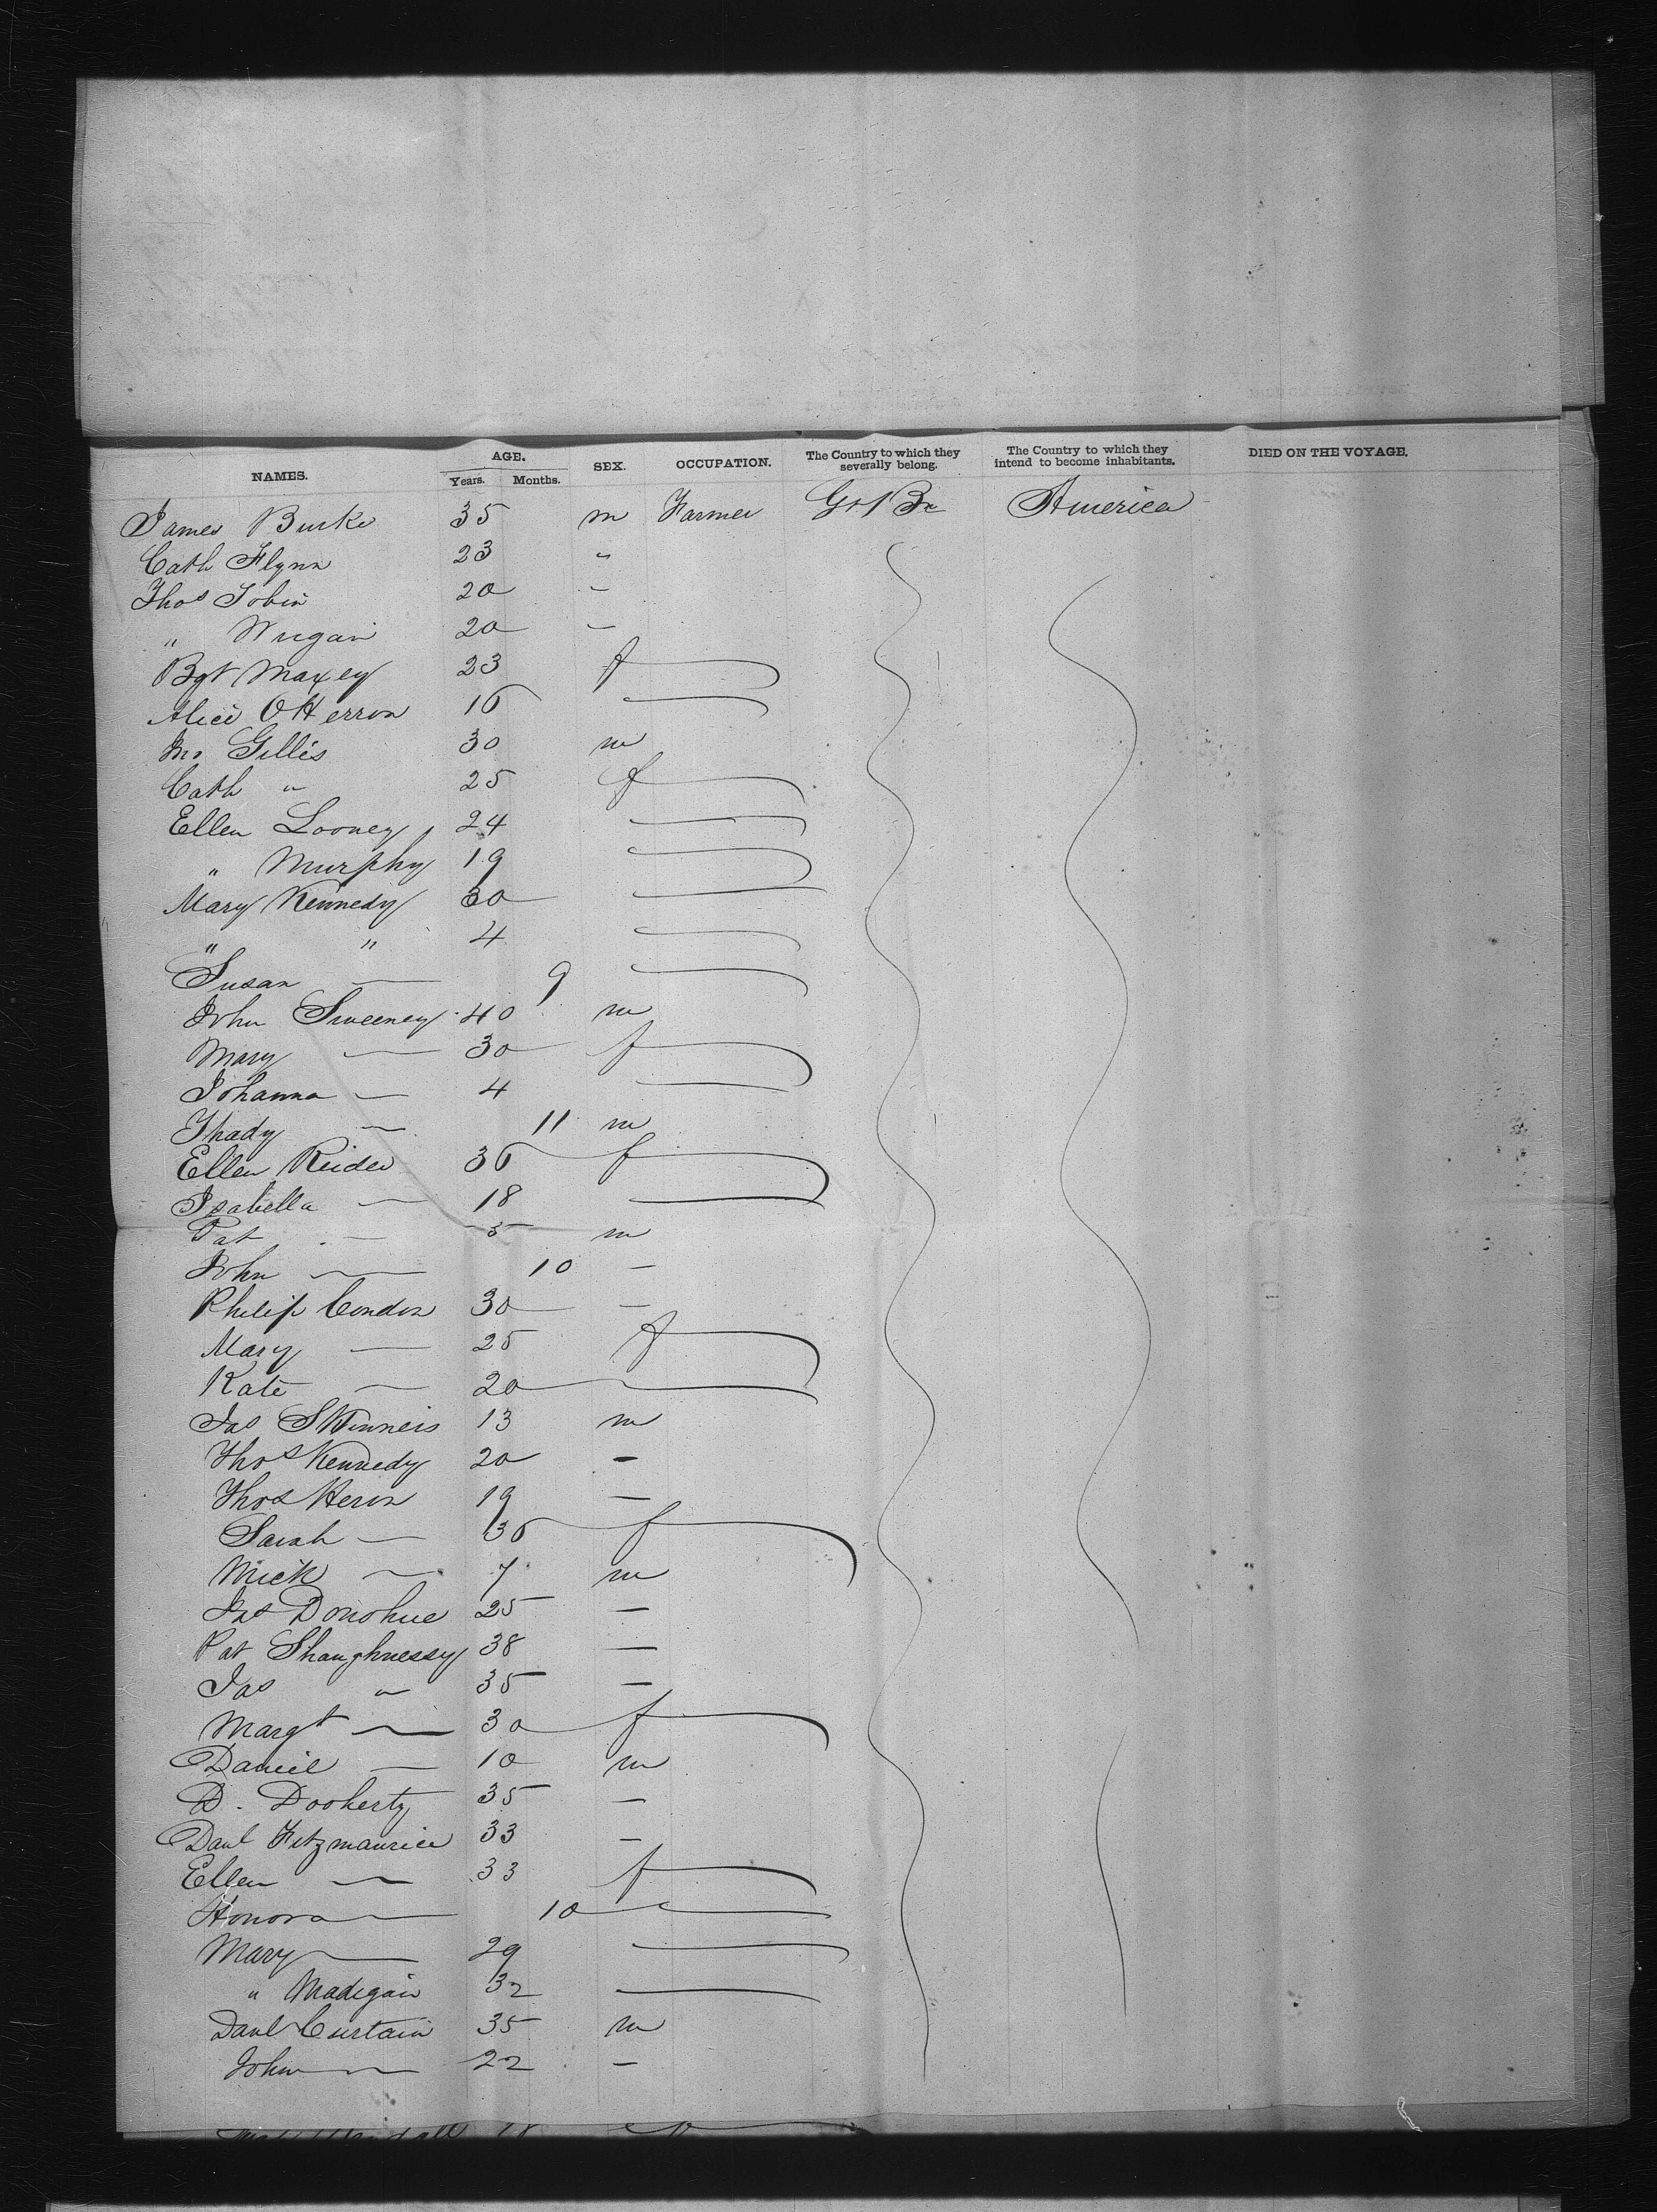 NAMES. AGE. Years. Months. SEX. OCCUPATION. The Country to which they severally belong. The Country to which they intend to become inhabitants. DIED ON THE VOYAGE.
James Burke 35 m Farmer Gt Br America
Cath Flynn 23 "
Thos Tobin 20 -
" 20 -
Bgt Maxey 23 f
Alice O'Herron 16
Jno Gillis 30 m
Cath " 25 f
Ellen Looney 24
" Murphy 19
Mary Kennedy 30
" " 4
Susan — 9
John Sweeney 40 m
Mary — 30 f
Johanna — 4
Thady — 11 m
Ellen Reider 36 f
Isabella — 18
Pat — 5 m
John — 10 -
Philip Condon 30 -
Mary — 25 f
Kate — 20
Jas 13 m
Thos Kennedy 20 -
Thos Heron 19 -
Sarah — 36 f
Mick — 7 m
Jas Donohue 25 -
Pat Shaughnessy 38 -
Jas " 35 -
Margt — 30 f
Daniel — 10 m
D. Dooherty 35 -
Danl Fitzmaurice 33 -
Ellen — 33 f
Honora — 10
Mary — 29
" Madigan 32
Danl Curtain 35 m
John — 22 -